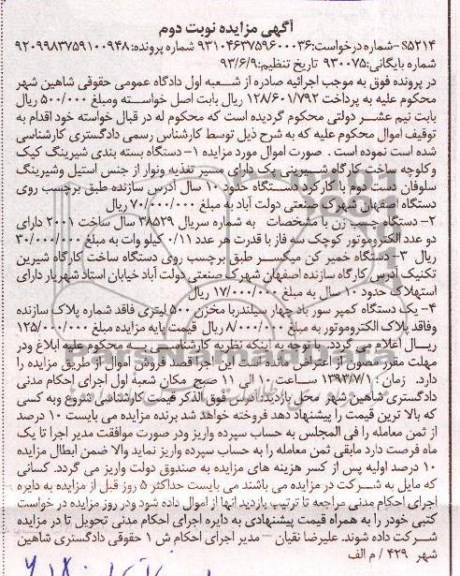 آگهی مزایده نوبت دوم
S۵۲۱۴ -شماره درخواست:۹۳۱۰۴۶۳۷۵۹۶۰۰۰۳۶ شماره پرونده: ۹۲۰۹۹۸۳۷۵۹۱۰۰۹۴۸
شماره بایگانی:۹۳۰۰۷۵ تاریخ تنظیم:۹۳/۶/۹
در پرونده فوق به موجب اجرائیه صادره از شعبه اول دادگاه عمومی حقوقی شاهین شهر
محکوم علیه به پرداخت ۱۲۸/۶۰۱/۷۹۲ ریال بابت اصل خواسته ومبلغ ۵۰۰/۰۰۰ ریال
بابت نیم عشر دولتی محکوم گردیده است که محکوم له در قبال خواسته خود اقدام به
توقیف اموال محکوم علیه که به شرح ذیل توسط کارشناس رسمی دادگستری کارشناسی
شده است نموده است . صورت اموال مورد مزایده ۱- دستگاه بسته بندی شیرینگ کیک
وکلوچه ساخت کارگاه شیرینی پک دارای مسیر تغذیه ونوار از جنس استیل وشیرینگ
سلوفان دست دوم با کارکرد دستگاه حدود ۱۰ سال آدرس سازنده طبق برچسب روی
دستگاه اصفهان شهرک صنعتی دولت آباد به مبلغ ۷۰/۰۰۰/۰۰۰ ریال
۲- دستگاه چسب زن با مشخصات به شماره سریال ۳۸۵۲۹ سال ساخت ۲۰۰۱ دارای
دو عدد الکتروموتور کوچک سه فاز با قدرت هر عدد ۰/۱۱ کیلو وات به مبلغ ۳۰/۰۰۰/۰۰۰
ریال ۳- دستگاه خمیر کن میکسر طبق برچسب روی دستگاه ساخت کارگاه شیرین
تکنیک آدرس کارگاه سازنده اصفهان شهرک صنعتی دولت آباد خیابان استاد شهریار دارای
استهلاک حدود ۱۰ سال به مبلغ ۱۷/۰۰۰/۰۰۰ ریال
۴- یک دستگاه کمپر سور باد چهار سیلندر با مخزن ۵۰۰ لیتری فاقد شماره پلاک سازنده
وفاقد پلاک الکتروموتور به مبلغ ۸/۰۰۰/۰۰۰ ریال قیمت پایه مزایده مبلغ ۱۲۵/۰۰۰/۰۰۰
ریال اعلام می گردد. با توجه به اینکه نظریه کارشناسی به محکوم علیه ابلاغ ودر
مهلت مقرر مصون از اعتراض مانده است این اجرا قصد فروش اموال از طریق مزایده را
دارد. زمان : ۱۳۹۳/۷/۱ ساعت ۱۰ الی ۱۱ صبح مکان شعبه اول اجرای احکام مدنی
دادگستری شاهین شهر محل بازدید: آدرس فوق الذکر قیمت کارشناسی شروع وبه کسی
که بالا ترین قیمت را پیشنهاد دهد فروخته خواهد شد برنده مزایده می بایست ۱۰ درصد
از ثمن معامله را فی المجلس به حساب سپرده واریز ودر صورت موافقت مدیر اجرا تا یک
ماه فرصت دارد مابقی ثمن معامله را به حساب سپرده واریز نماید والا ضمن ابطال مزایده
۱۰ درصد اولیه پس از کسر هزینه های مزایده به صندوق دولت واریز می گردد. کسانی
که مایل به شرکت در مزایده می باشند می بایست حداکثر ۵ روز قبل از مزایده به دایره
اجرای احکام مدنی مراجعه تا ترتیب بازدید آنها از اموال داده شود ودر روز مزایده در خواست
کتبی خود را به همراه قیمت پیشنهادی به دایره اجرای احکام مدنی تحویل تا در مزایده
شرکت داده شوند. علیرضا نقیان – مدیر اجرای احکام ش ۱ حقوقی دادگستری شاهین
شهر ۴۲۹ / م الف
ParsNamadData